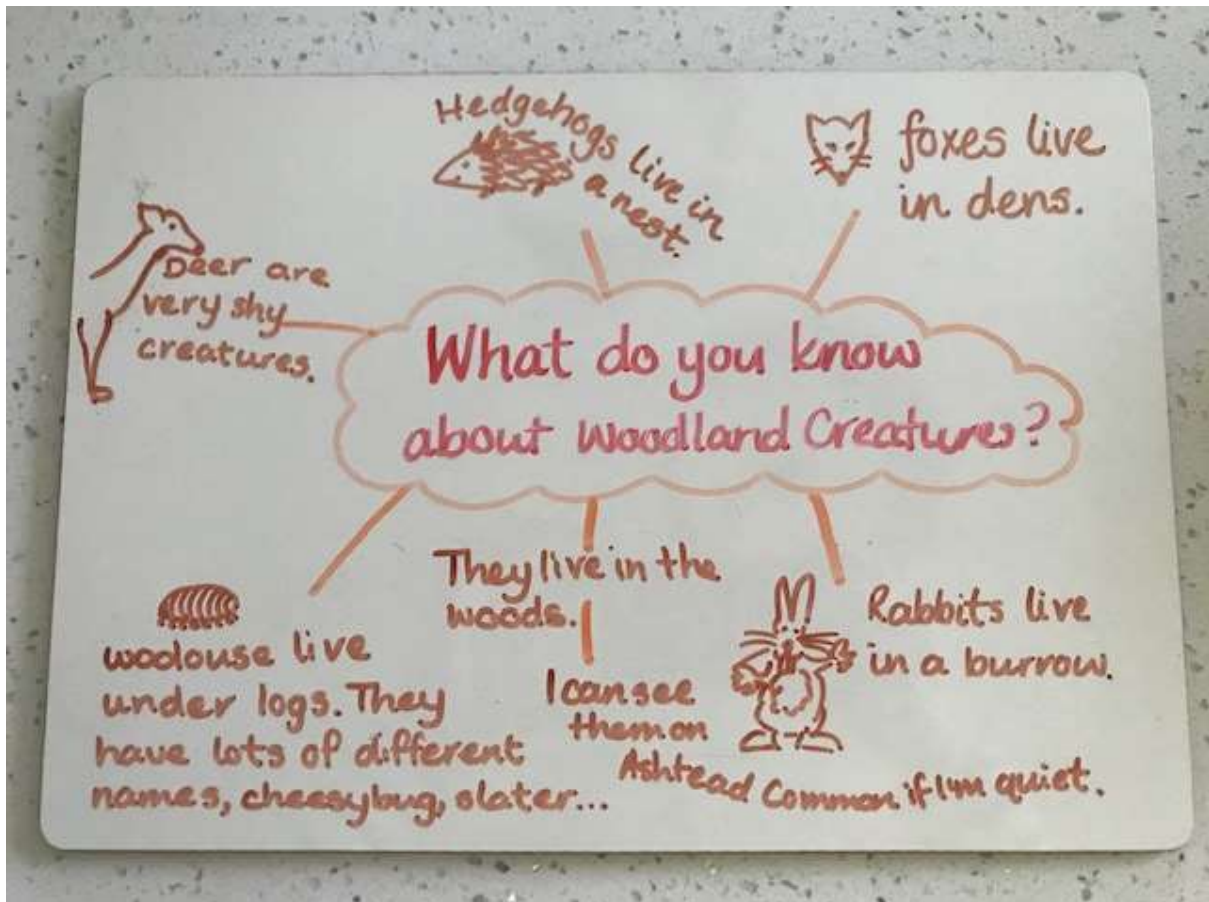 What do you know
about Woodland Creatures?
Hedgehogs live in
a nest.
foxes live
in dens.
Deer are
very shy
creatures.
woodlouse live
under logs. They
have lots of different
names, cheesybug, slater...
They live in the
woods.
I can see
them on
Ashtead Common if I'm quiet.
Rabbits live
in a burrow.